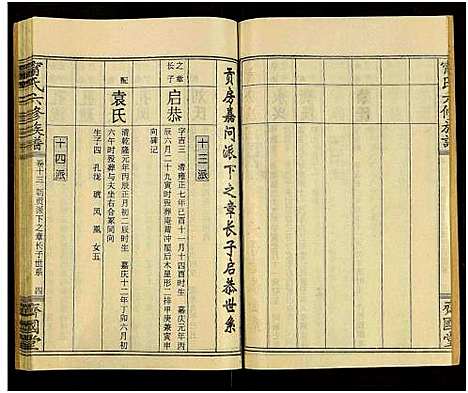 甯氏六修族譜
齊國堂
贡房嘉问派下之章长子启恭世系
十三派
之章长子
启恭
字吉三 清雍正七年己酉十一月十四酉时生 嘉庆元年丙
辰六月二十九寅时殁葬庵前冲屋后木星形二排甲庚兼寅申
向碑记
配
袁氏
清乾隆元年丙辰正月初二辰时生 嘉庆十二年丁卯六月初
六午时殁葬与夫坐右合冢同向
生子四 孔垅 琥 凤 凰 女五
十四派
甯氏六修族譜
卷十三
派下之章长子世系
四
齊國堂